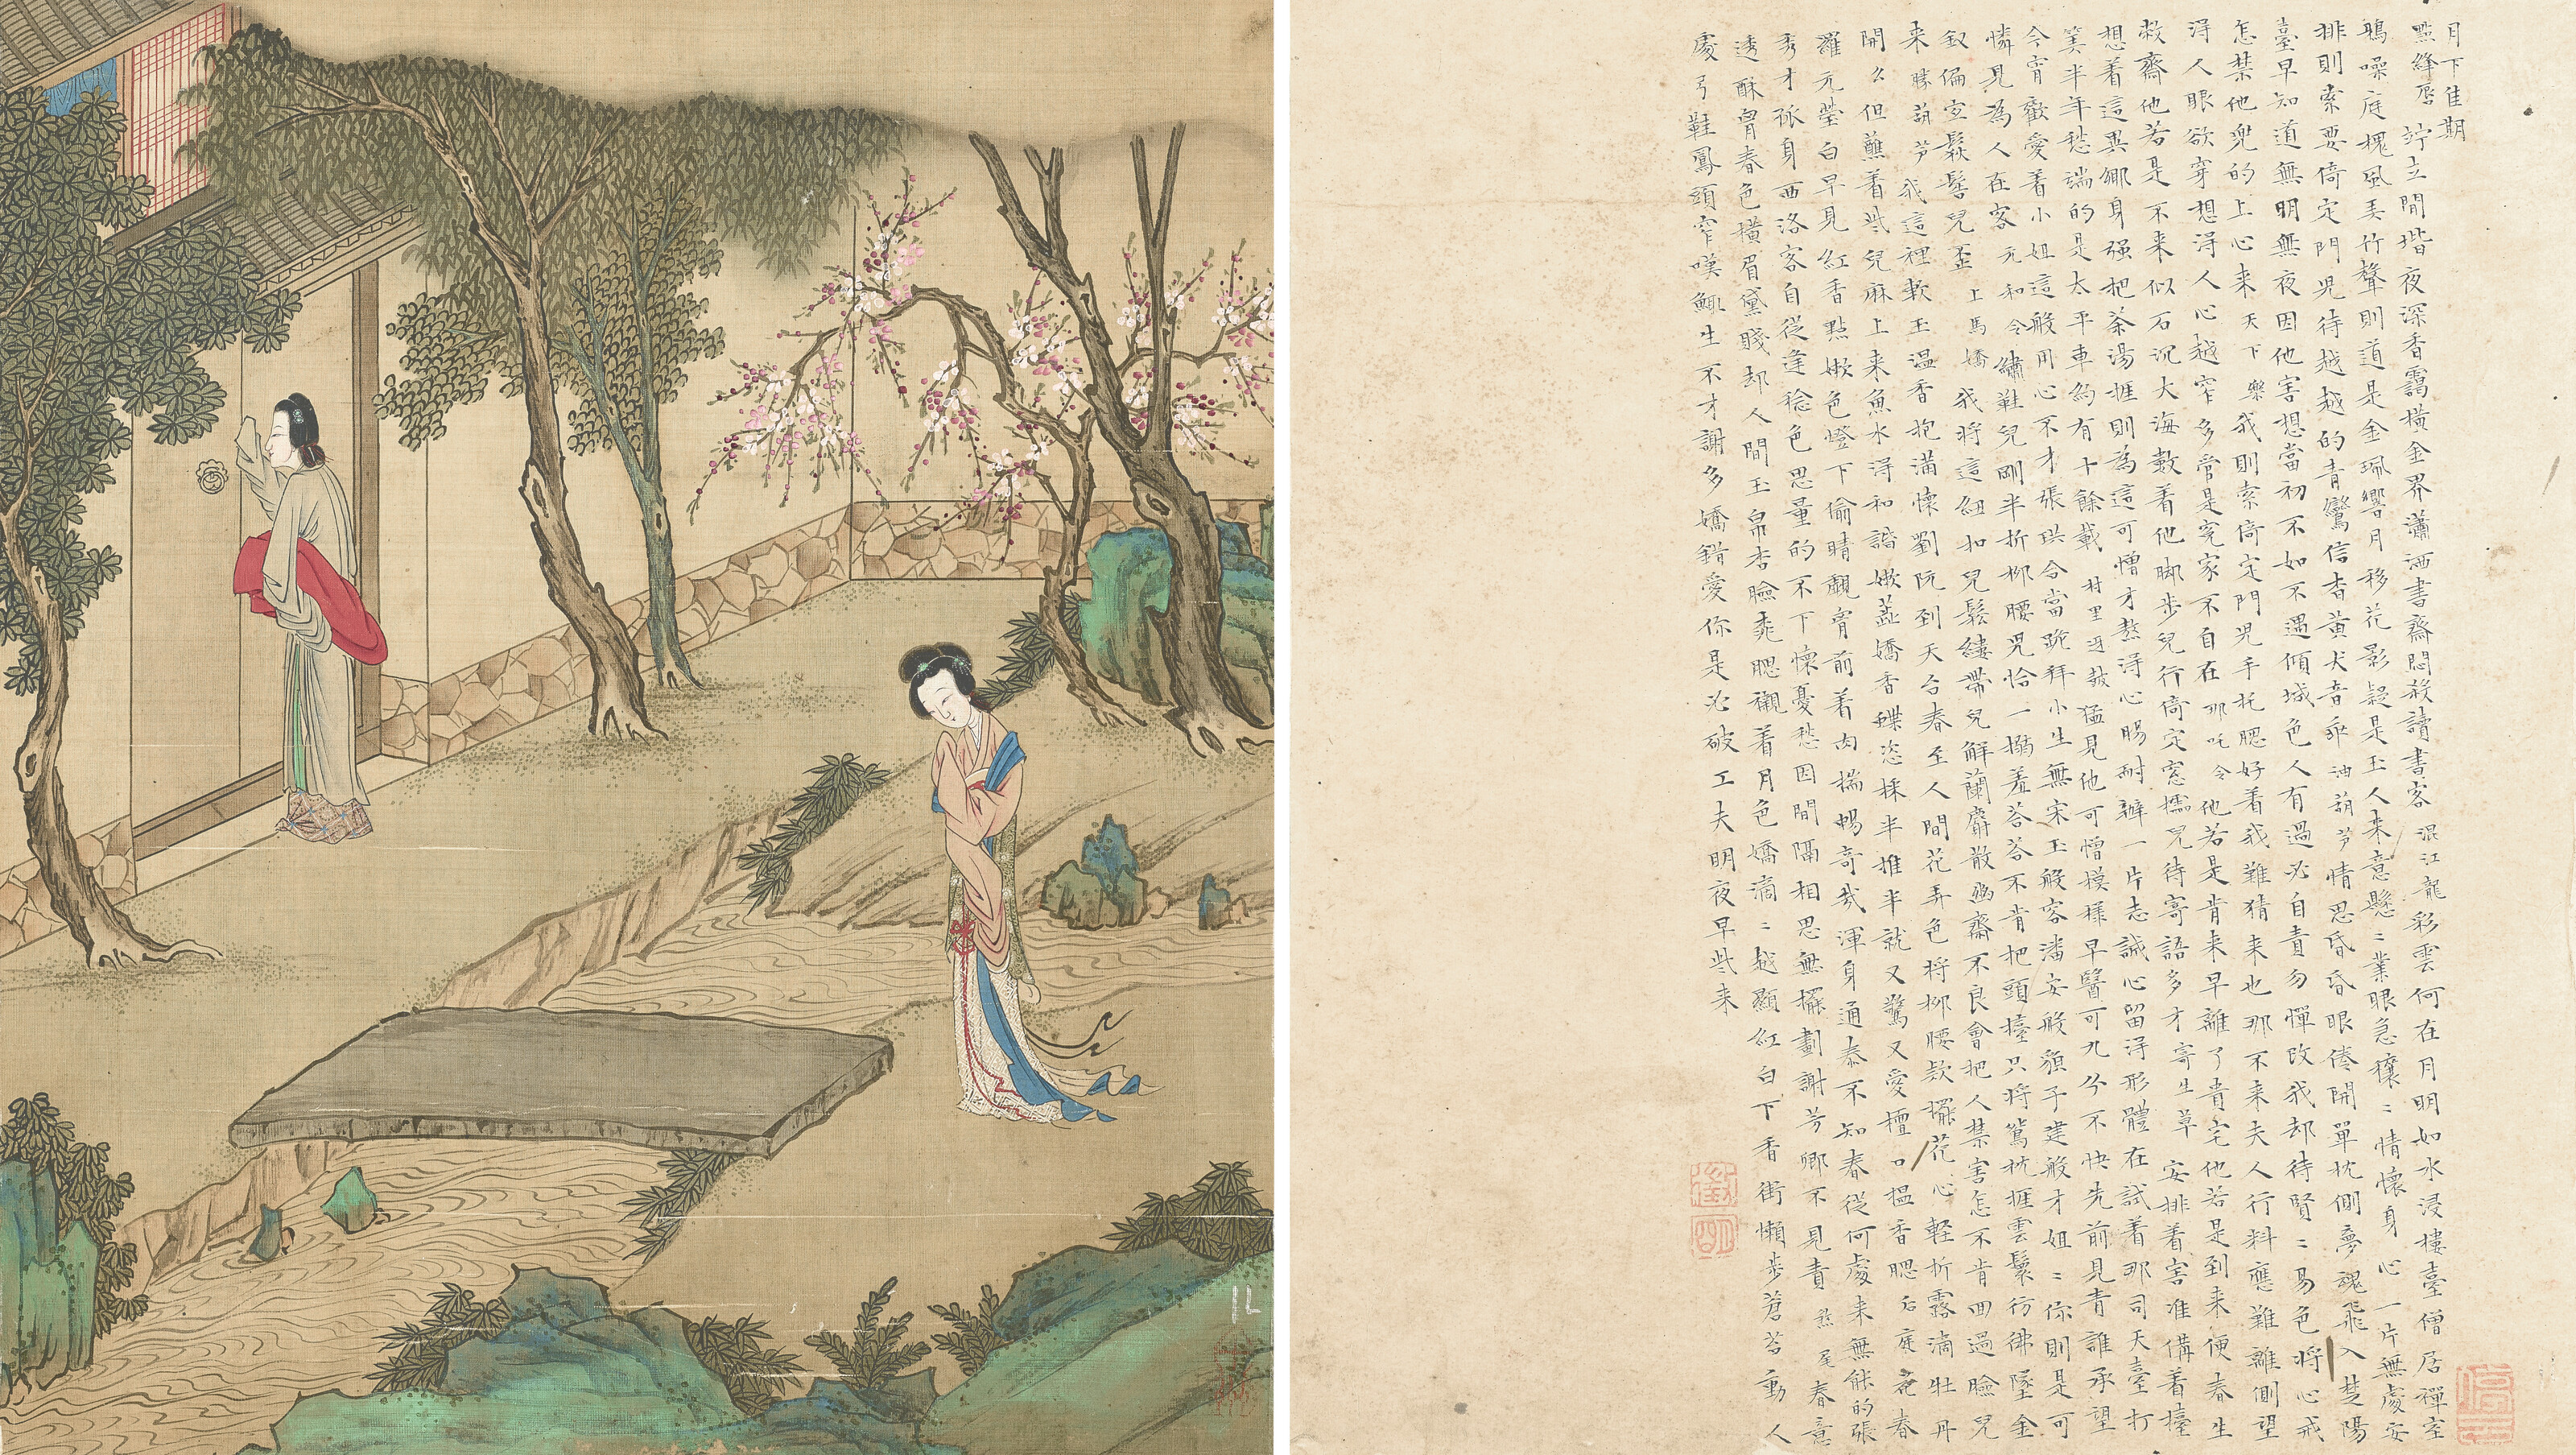 月下佳期
點絳唇 竚立閒堦夜深香靄橫金界瀟洒書齋悶殺讀書客 混江龍 彩雲何在月明如水浸樓臺僧居禪室
鴉噪庭槐風弄竹聲則道是金珮響月移花影疑是玉人来意懸〻業眼急穰〻情懷身心一片無處安
排則索要倚定門兒待越越的青鸞信杳黃犬音乖 油葫芦 情思昏昏眼倦開單枕側夢魂飛入楚陽
臺早知道無明無夜因他害想當初不如不遇傾城色人有過必自責勿憚改我却待賢〻易色將心戒
怎禁他兜的上心来 天下樂 我則索倚定門兒手托腮好着我難猜来也那不来夫人行料應難離側望
得人眼欲穿想得人心越窄多常是寃家不自在 那吒令 他若是肯来早離了貴宅他若是到来便春生
敝齋他若是不来似石沉大海數着他脚步兒行倚定窓櫺兒待寄語多才 寄生草 安排着害准備着擡
想着這異鄉身强把茶湯捱則為這可憎才熬得心腸耐辦一片志誠心留得形體在試着那司天臺打
筭半年愁端的是太平車約有十餘載 村里迓皷 猛見他可憎模樣早醫可九分不快先前見責誰承望
今宵歡愛着小姐這般用心不才張珙合當跪拜小生無宋玉般容潘安般貌子建般才姐〻你則是可
憐見為人在客 元和令 繡鞋兒剛半折柳腰兒恰一搦羞荅荅不肯把頭擡只將鴛枕捱雲鬟彷彿墜金
釵偏宜鬆髻兒歪 上馬嬌 我將這紐扣兒鬆縷帶兒解蘭麝散幽齋不良會把人禁害怎不肯回過臉兒
来 勝葫芦 我這裡軟玉温香抱滿懷劉阮到天台春至人間花弄色將柳腰欵擺花心輕折露滴牡丹
開 幺 但蘸着些兒麻上来魚水得和諧嫩蕋嬌香蝶恣採半推半就又驚又愛檀口揾香腮 后庭花 春
羅元瑩白早見紅香點嫩色燈下偷睛覷胷前着肉揣暢奇哉渾身通泰不知春從何處来無能的張
秀才孤身西洛客自從逢稔色思量的不下懷憂愁因間隔相思無擺劃謝芳卿不見責 煞尾 春意
透酥胷春色橫眉黛賤却人間玉帛杏臉桃腮襯着月色嬌滴〻越顯紅白下香街懶步蒼苔動人
處弓鞋鳳頭窄嘆鯫生不才謝多嬌錯愛你是必破工夫明夜早些来
徵明